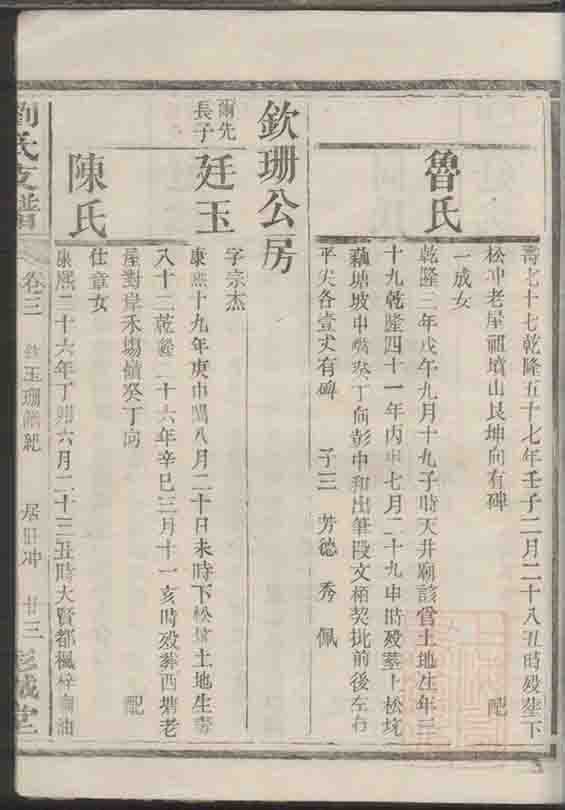 壽七十七乾隆五十七年壬子二月二十八丑時殁塟下
松冲老屋祖墳山艮坤向有碑 配
魯氏
一成女
乾隆三年戊午九月十九子時天井廟該當土地生年三
十九乾隆四十一年丙申七月二十九申時殁塟上松坑
藕塘坡中嘴癸丁向彭中和出筆段文楠契批前後左右
平尖各壹丈有碑 子三 芳德 秀 佩
欽珊公房
爾先
長子
廷玉
字宗杰
康熙十九年庚申閏八月二十日未時下松坑土地生壽
八十二乾隆二十六年辛巳三月十一亥時殁葬西塘老
屋對岸禾塲嶺癸丁向 配
陳氏
仕章女
康熙二十六年丁卯六月二十三丑時大賢都楓梓廟油
劉氏支譜 卷三 居冲 廿三 彭城堂